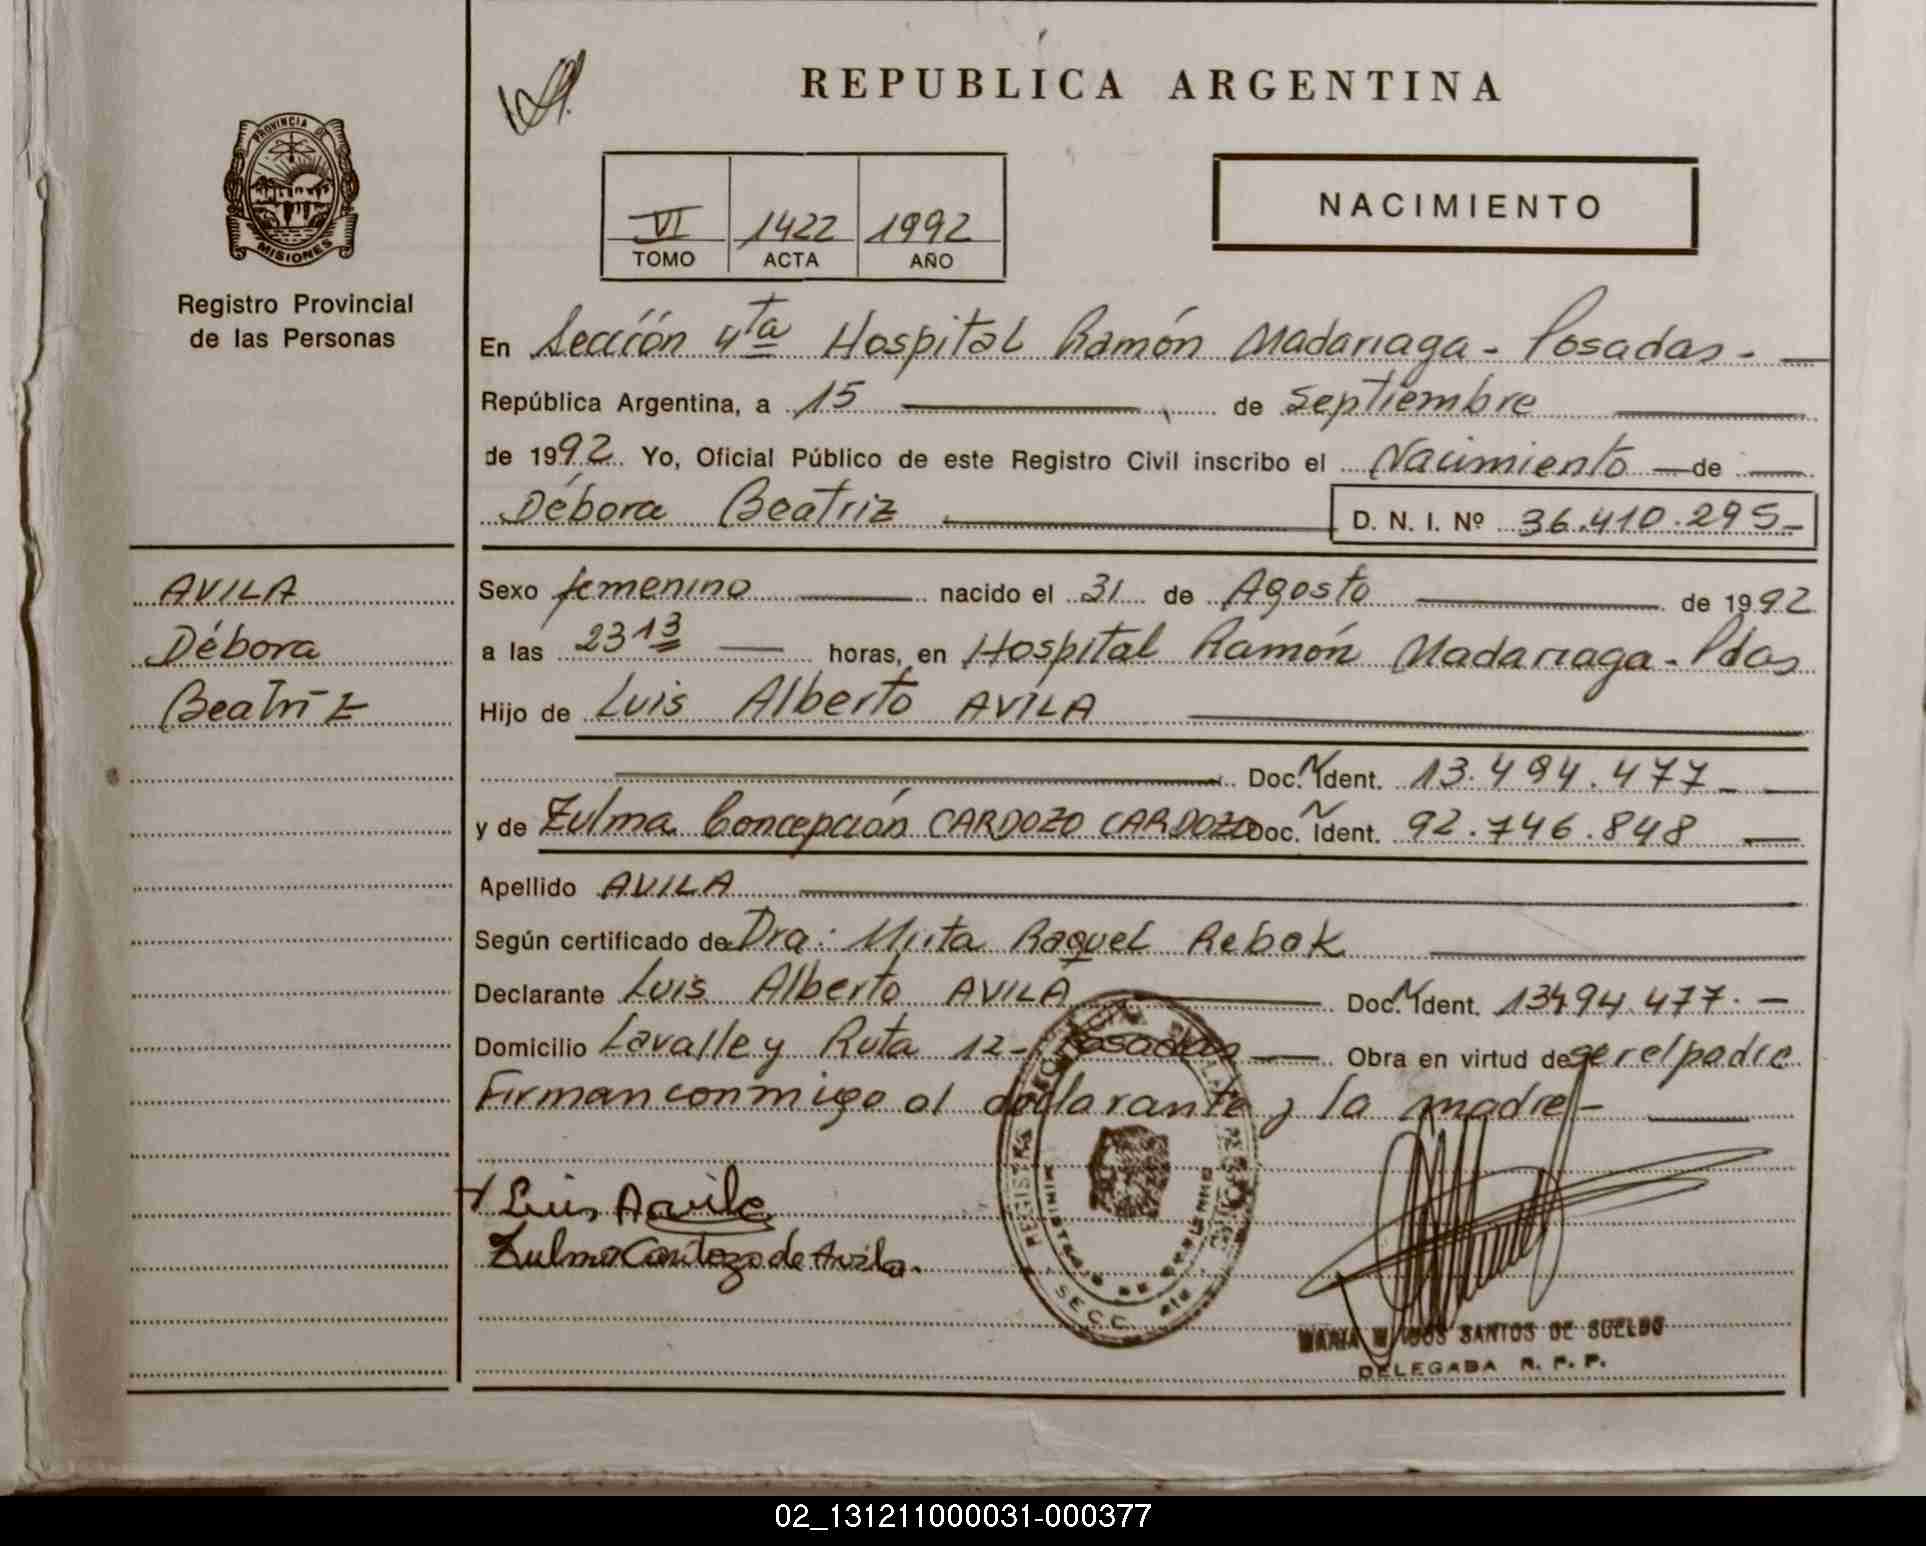 REPUBLICA ARGENTINA
PROVINCIA DE
MISIONES
Registro Provincial
de las Personas
VI 1422 1992
TOMO ACTA AÑO
NACIMIENTO
En Sección 4ta Hospital Ramón Madariaga - Posadas -
República Argentina, a 15 de Septiembre
de 1992 Yo, Oficial Público de este Registro Civil inscribo el Nacimiento de
Débora Beatriz D. N. I. Nº 36.410.295
AVILA
Débora
Beatriz
Sexo femenino nacido el 31 de Agosto de 1992
a las 23 13 horas, en Hospital Ramón Madariaga - Pdas
Hijo de Luis Alberto AVILA
Doc. Ident. 13.494.477
y de Zulma Concepción CARDOZO CARDOZO Doc. Ident. 92.746.848
Apellido AVILA
Según certificado de Dra. Mirta Raquel Rebok
Declarante Luis Alberto AVILA Doc. Ident. 13494.477.
Domicilio Lavalle y Ruta 12 - Posadas Obra en virtud de ser el padre
Firman conmigo el declarante y la madre -
Luis Avila
Zulma Cardozo de Avila.
SECC.
SANTOS DE SUELDO
DELEGADA R. P. P.
02_131211000031-000377